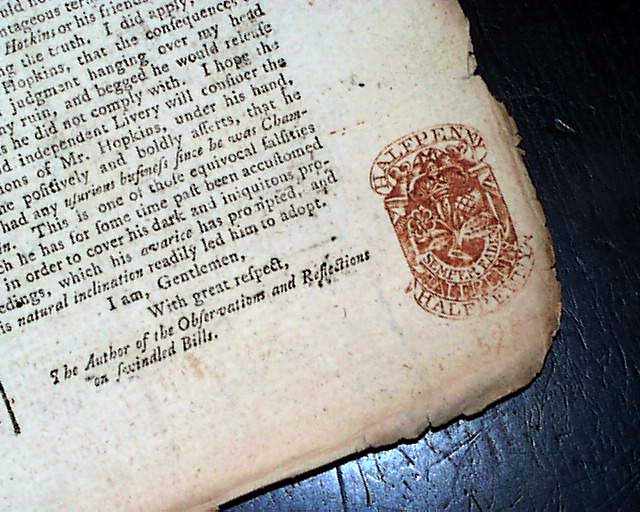 Hoskins or his friend
ng the truth. I did apply,
Hopkins, that the consequences,
judgment hanging over my head
my ruin, and begged he would releaſe
as he did not comply with. I hope the
d independent Livery will conſider the
ions of Mr. Hopkins, under his hand,
ne poſitively and boldly aſſerts, that he
had any uſurious buſineſs ſince he was Cham-
in. This is one of thoſe equivocal falſities
ch he has for ſome time paſt been accuſtomed
in order to cover his dark and iniquitous pro-
edings, which his avarice has prompted, and
is natural inclination readily led him to adopt.
I am, Gentlemen,
With great reſpect,
The Author of the Obſervations and Reflections
on ſwindled Bills.
HALFPENNY
SEMPER EADEM
HALFPENNY
HALFPENNY